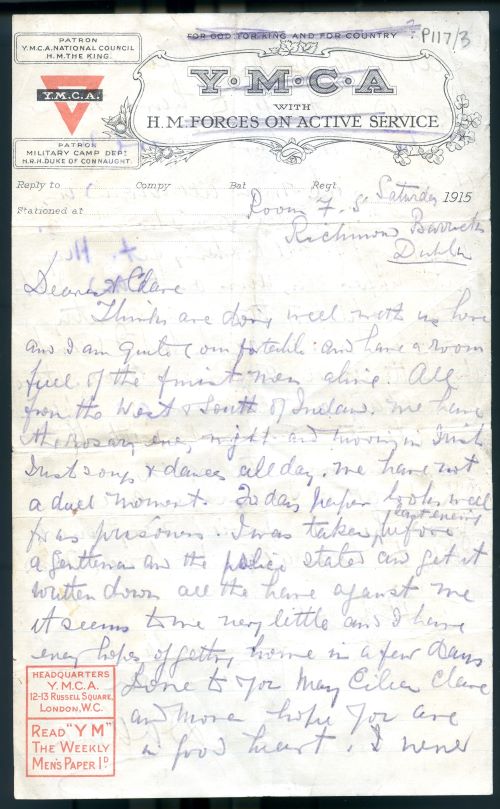 P117/3
FOR GOD FOR KING AND FOR COUNTRY
PATRON
Y.M.C.A. NATIONAL COUNCIL
H.M. THE KING.
Y.M.C.A.
PATRON
MILITARY CAMP DEPT
H.R.H. DUKE OF CONNAUGHT.
Y·M·C·A
WITH
H.M. FORCES ON ACTIVE SERVICE
Reply to Compy Bat Regt Saturday 1915
Stationed at Room F. S
Richmond Barracks
Dublin
Dearest Clare
Things are doing well with us here
and I am quite comfortable and have a room
full of the finest men alive. All
from the West & South of Ireland. We have
the Rosary every night and morning in Irish
Irish songs & dances all day. We have not
a dull moment. To days paper looks well
for us prisoners. I was taken last evening before
a gentleman and the police stated and get it
written down all the have against me
it seems to me very little and I have
every hopes of getting home in a few days
Love to you May Eileen Clare
and Mona hope you are
in good heart. I never
HEADQUARTERS
Y.M.C.A.
12-13 RUSSELL SQUARE,
LONDON, W.C.
READ "YM"
THE WEEKLY
MEN'S PAPER 1D